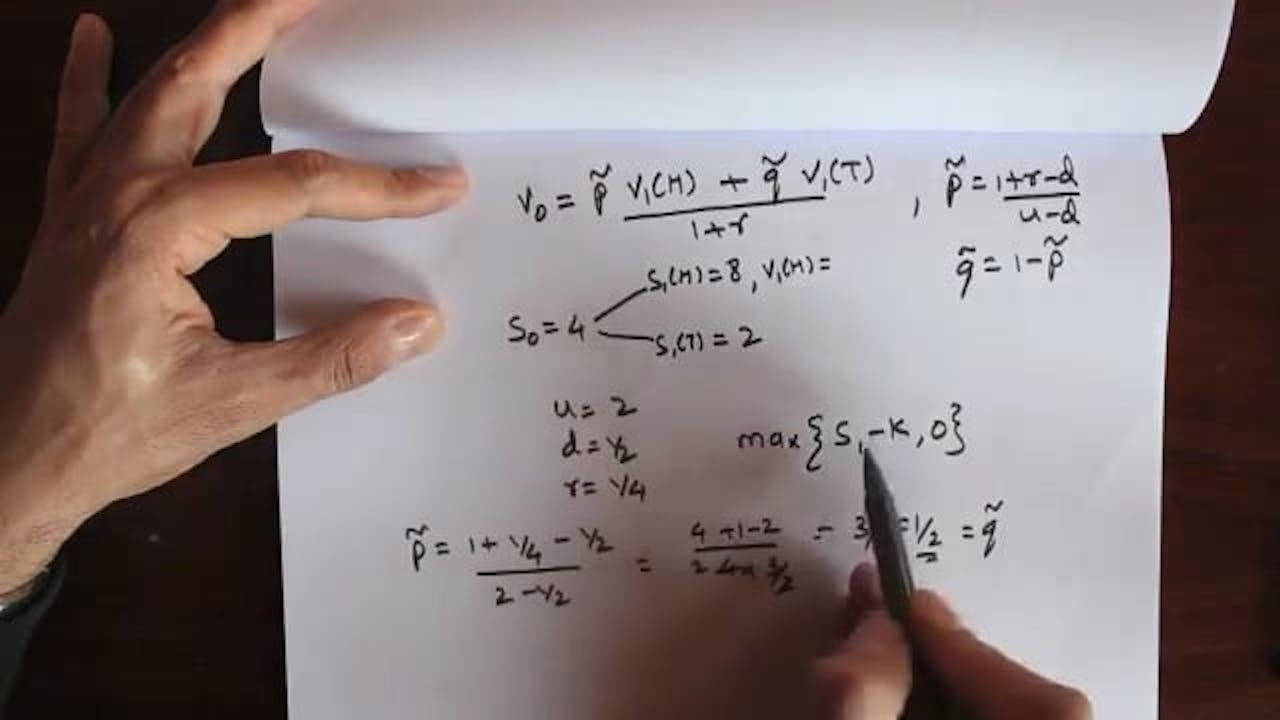 V₀ = p̃ V₁(H) + q̃ V₁(T) / 1+r , p̃ = 1+r-d / u-d
q̃ = 1-p̃
S₁(H) = 8, V₁(H) =
S₀ = 4
S₁(T) = 2
u = 2
d = 1/2
r = 1/4
max{S₁-K, 0}
p̃ = 1 + 1/4 - 1/2 / 2 - 1/2 = 4+1-2 / 2 3/2 = 3/ = 1/2 = q̃